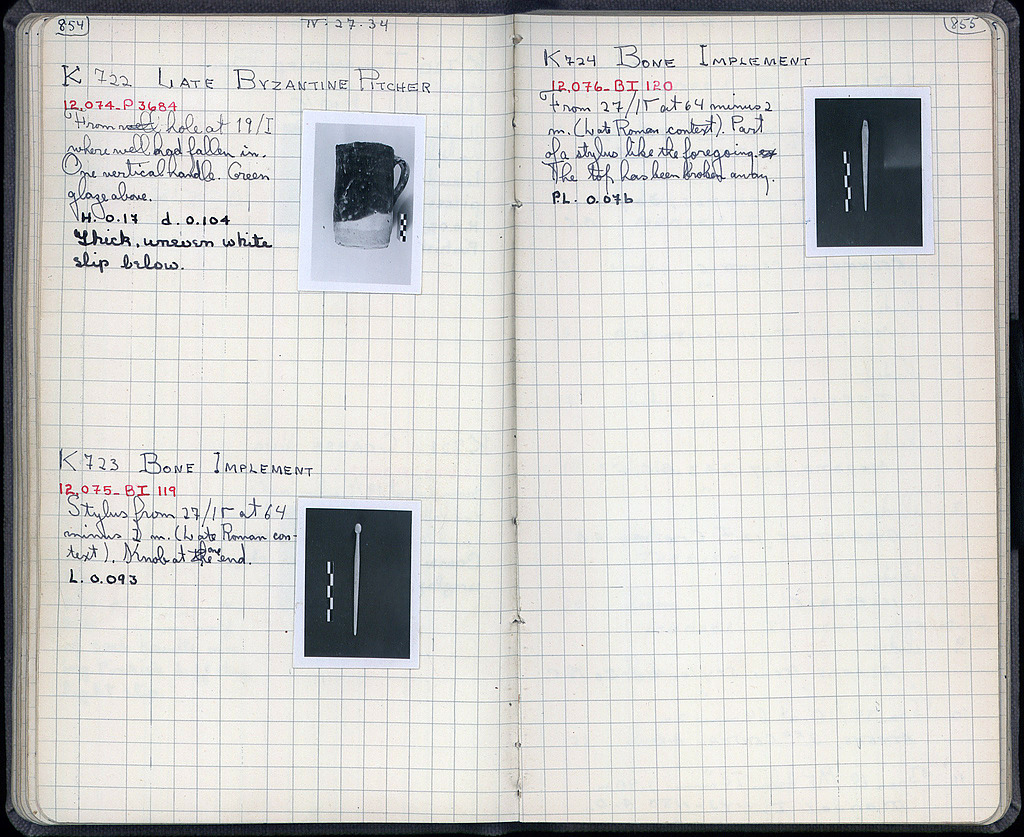 854
IV·27·34
K 722 LATE BYZANTINE PITCHER
12.074-P 3684
From well hole at 19/I
where well had fallen in.
One vertical handle. Green
glaze above.
H. 0.17 d. 0.104
Thick, uneven white
slip below.
K 723 BONE IMPLEMENT
12.075-BI 119
Stylus from 27/ΙΕ at 64
minus 2 m. (Late Roman con-
text). Knob at the one end.
L. 0.093
855
K 724 BONE IMPLEMENT
12.076-BI 120
From 27/ΙΕ at 64 minus 2
m. (Late Roman context). Part
of a stylus like the foregoing.
The top has been broken away.
P.L. 0.076